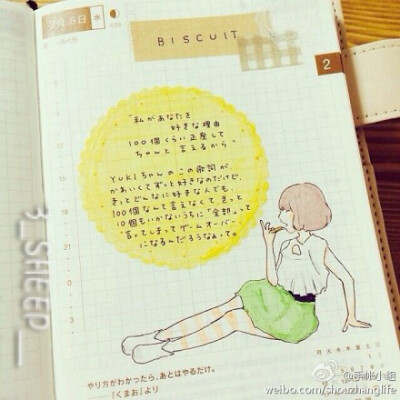 2月5日 水
BISCUIT
2
"私があなたを
好きな理由
100個くらい正座して
ちゃんと言えるから"
YUKIちゃんのこの歌詞が
かあいくてずっと好きなのだけど、
きっとどんなに好きな人でも、
100個なんて言えなくてきっと
10個もいかないうちに"全部"って
言ってしまってゲームオーバー
になるんだろうなぁって。
やり方がわかったら、あとはやるだけ。
『くまお』より
月 火 水 木 金 土 日
3_SHEEP_
@手帐小组
weibo.com/shouzhanglife